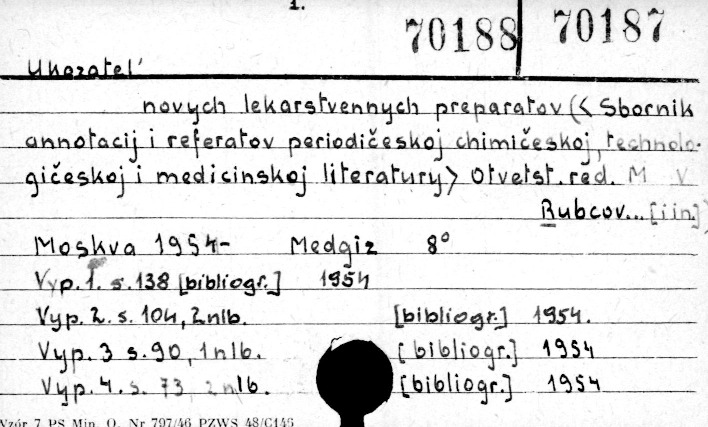 1.
70188 70187
Ukazatel'
novych lekarstvennych preparatov (< Sbornik
annotacij i referatov periodičeskoj chimičeskoj, technolo-
gičeskoj i medicinskoj literatury> Otvetst. red. M V
Rubcov... [iin.])
Moskva 1954- Medgiz 8°
Vyp. 1. s. 138 [bibliogr.] 1954
Vyp. 2. s. 104, 2nlb. [bibliogr.] 1954.
Vyp. 3 s. 90, 1nlb. [bibliogr.] 1954
Vyp. 4. s. 73, 2nlb. [bibliogr.] 1954
Wzór 7 PS Min. O. Nr 797/46 PZWS 48/C146